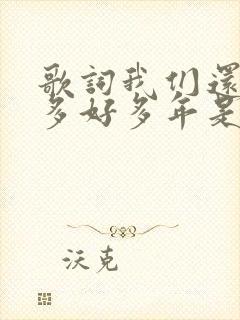 歌詞我们還
多好多年是
沃克